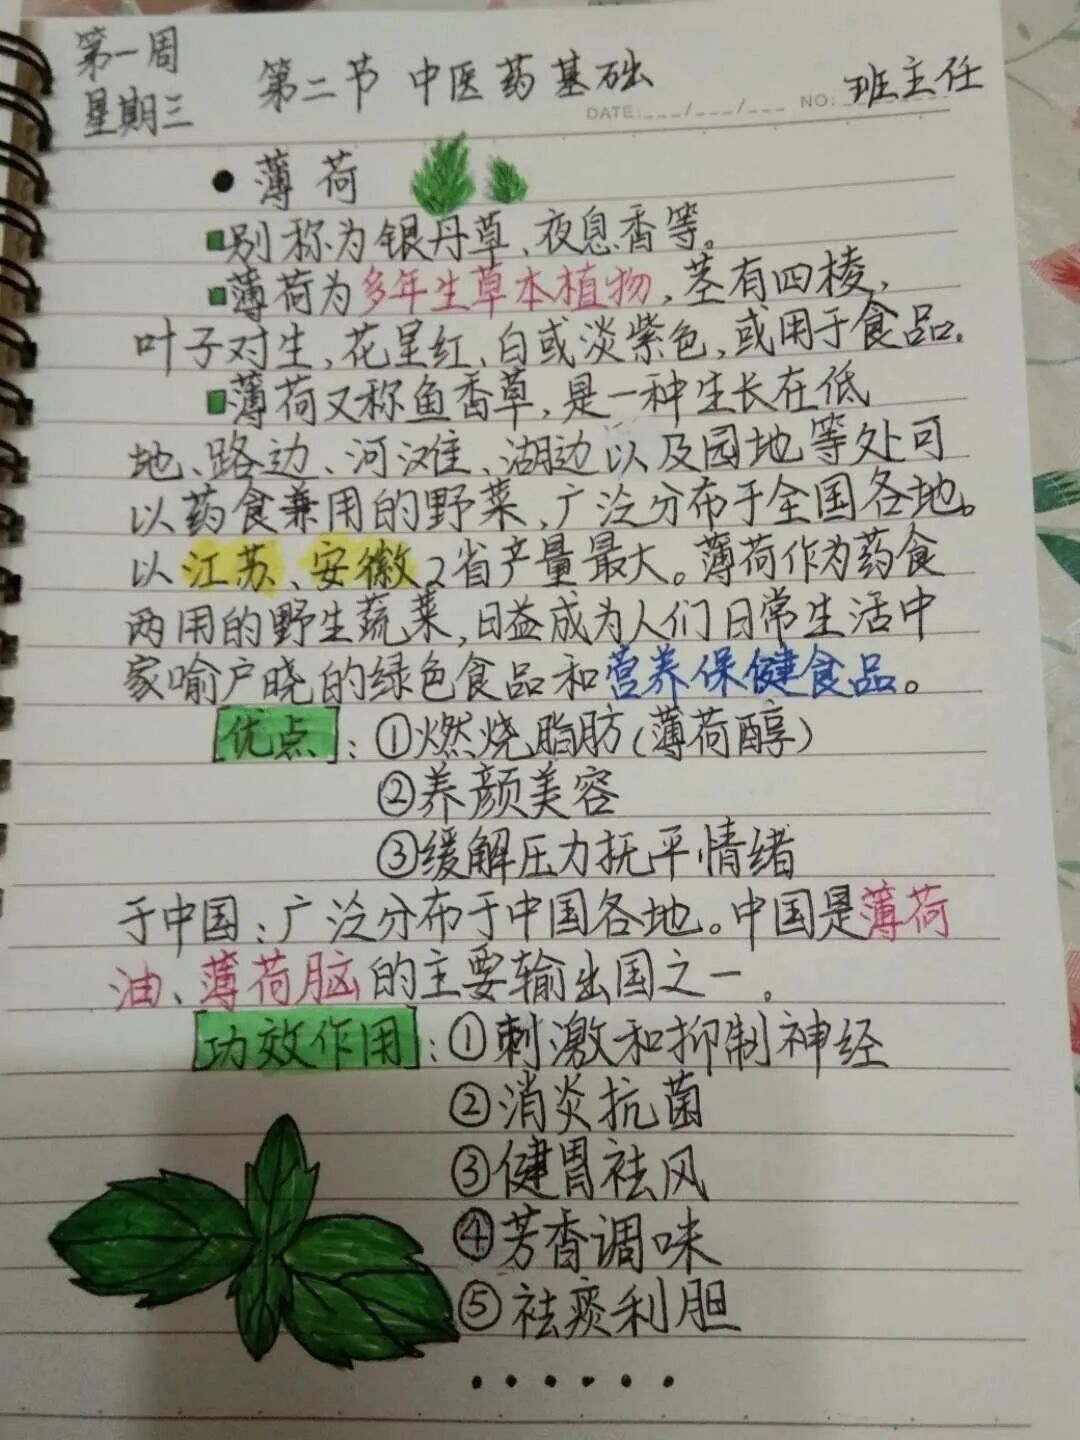 第一周
星期三
第二节 中医药基础
班主任
DATE:___/___/___ NO:
薄荷
别称为银丹草、夜息香等。
薄荷为多年生草本植物,茎有四棱,
叶子对生,花呈红、白或淡紫色,或用于食品.
薄荷又称鱼香草,是一种生长在低
地、路边、河滩、湖边以及园地等处可
以药食兼用的野菜、广泛分布于全国各地。
以江苏、安徽2省产量最大。薄荷作为药食
两用的野生蔬菜,日益成为人们日常生活中
家喻户晓的绿色食品和营养保健食品。
[优点]:①燃烧脂肪(薄荷醇)
②养颜美容
③缓解压力抚平情绪
于中国:广泛分布于中国各地。中国是薄荷
油、薄荷脑的主要输出国之一。
[功效作用]:①刺激和抑制神经
②消炎抗菌
③健胃祛风
④芳香调味
⑤祛痰利胆
······